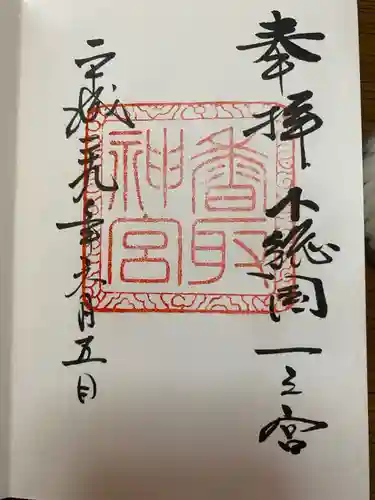 奉拝 下総国一之宮
香取神宮
平成二九年六月五日